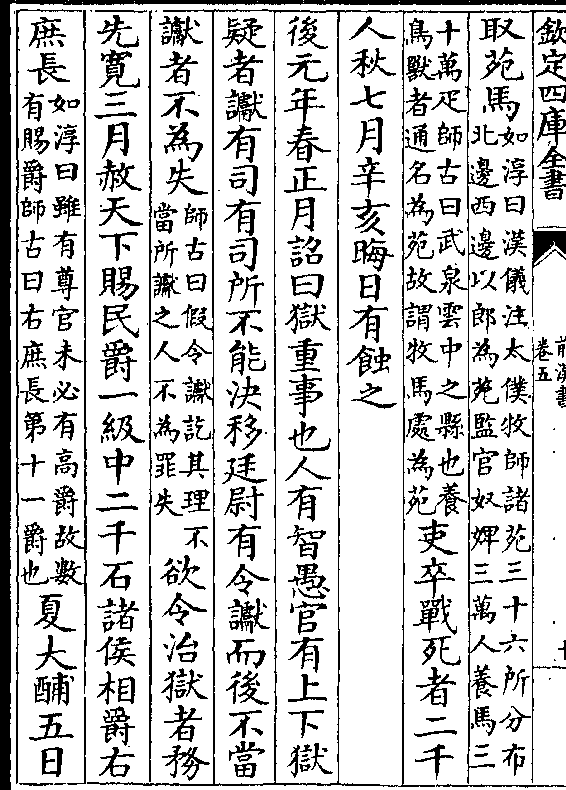 欽定四庫全書
前漢書
卷五
取苑馬如淳曰漢儀注太僕牧師諸苑三十六所分布北邊西邊以郎為苑監官奴婢三萬人養馬三
十萬疋師古曰武泉雲中之縣也養鳥獸者通名為苑故謂牧馬處為苑吏卒戰死者二千
人秋七月辛亥晦日有蝕之
後元年春正月詔曰獄重事也人有智愚官有上下獄
疑者讞有司有司所不能決移廷尉有令讞而後不當
讞者不為失師古曰假令讞訖其理不當所讞之人不為罪失欲令治獄者務
先寬三月赦天下賜民爵一級中二千石諸侯相爵右
庶長如淳曰雖有尊官未必有高爵故數有賜爵師古曰右庶長第十一爵也夏大酺五日